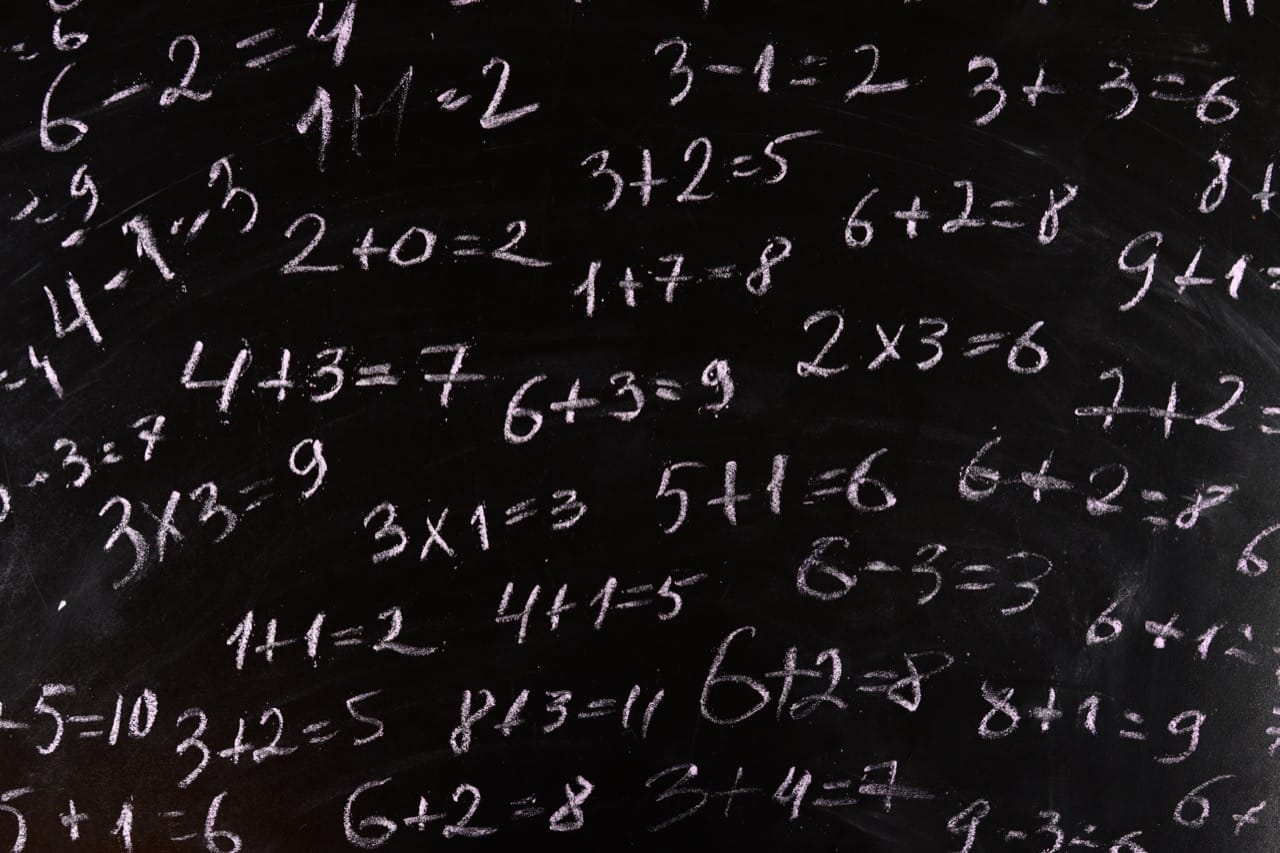 = 6
6 - 2 = 4
1+1 = 2
3 - 1 = 2
3 + 3 = 6
= 9
4 - 1 = 3
2 + 0 = 2
3 + 2 = 5
1 + 7 = 8
6 + 2 = 8
8 +
9 + 1 =
4 + 3 = 7
6 + 3 = 9
2 x 3 = 6
7 + 2 =
- 3 = 7
3 x 3 = 9
3 x 1 = 3
5 + 1 = 6
6 + 2 = 8
6
1 + 1 = 2
4 + 1 = 5
6 - 3 = 3
6 + 1 =
5 = 10
3 + 2 = 5
8 + 3 = 11
6 + 2 = 8
8 + 1 = 9
5 + 1 = 6
6 + 2 = 8
3 + 4 = 7
9 - 3 = 6
6 +